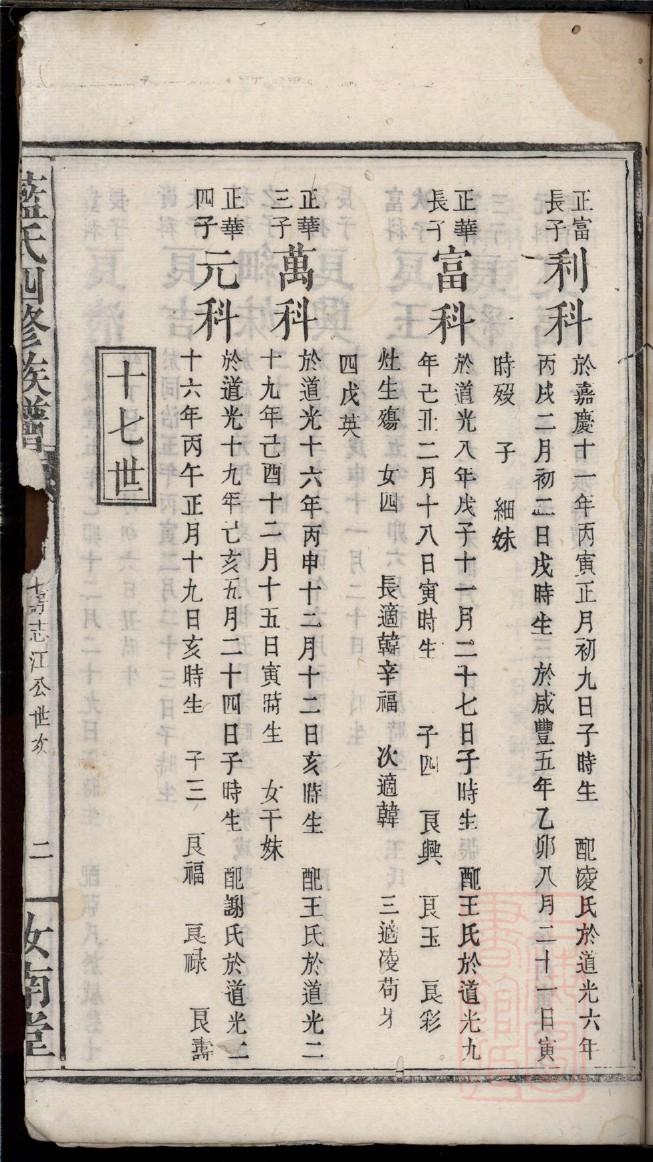 正富
長子
利科
於嘉慶十一年丙寅正月初九日子時生 配凌氏於道光六年
丙戌二月初二日戌時生 於咸豐五年乙卯八月二十一日寅
時歿 子 細妹
正華
長子
富科
於道光八年戊子十一月二十七日子時生 配王氏於道光九
年己丑二月十八日寅時生 子四 良興 良玉 良彩
灶生殤 女四 長適韓辛福 次適韓 三適凌苟牙
四戊英
正華
三子
萬科
於道光十六年丙申十二月十二日亥時生 配王氏於道光二
十九年己酉十二月十五日寅時生 女干妹
正華
四子
元科
於道光十九年己亥五月二十四日子時生 配謝氏於道光二
十六年丙午正月十九日亥時生 子三 良福 良祿 良壽
十七世
藍氏四修族譜
志江公世系
二
汝南堂